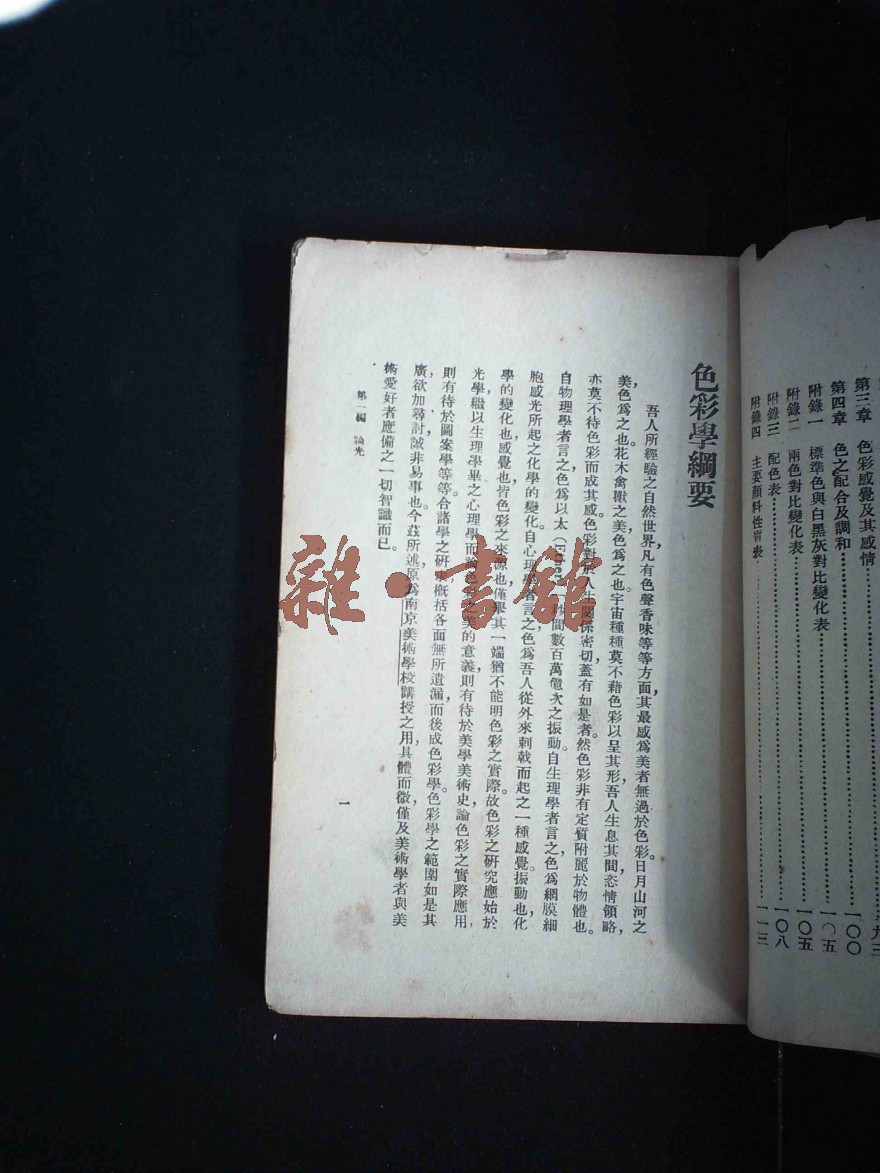 第三章　色彩感覺及其感情……九三
第四章　色之配合及調和……一〇〇
附錄一　標準色與白黑灰對比變化表……一〇五
附錄二　兩色對比變化表……一〇五
附錄三　配色表……一〇八
附錄四　主要顏料性質表……一一三
色彩學綱要
吾人所經驗之自然世界，凡有色聲香味等等方面，其最感爲美者，無過於色彩。日月山河之
美，色爲之也。花木禽獸之美，色爲之也。宇宙種種，莫不藉色彩以呈其形，吾人生息其間，恣情領略，
亦莫不待色彩而成其感。色彩對於人生關係密切，蓋有如是者。然色彩非有定質附麗於物體也。
自物理學者言之，色爲以太（Ether）秒間數百萬億次之振動。自生理學者言之，色爲網膜細
胞感光所起之化學的變化。自心理學者言之，色爲吾人從外來刺戟而起之一種感覺。振動也，化
學的變化也，感覺也，皆色彩之來源也。僅舉其一端，猶不能明色彩之實際。故色彩之研究，應始於
光學，繼以生理學，畢之心理學。而論色彩之美的意義，則有待於美學美術史，論色彩之實際應用，
則有待於圖案學等等。合諸學之研究，概括各面，無所遺漏，而後成色彩學。色彩學之範圍如是其
廣，欲加尋討，誠非易事也。今茲所述，原爲南京美術學校講授之用，具體而微，僅及美術學者與美
術愛好者應備之一切智識而已。
第一編　論光
一
雜·書館